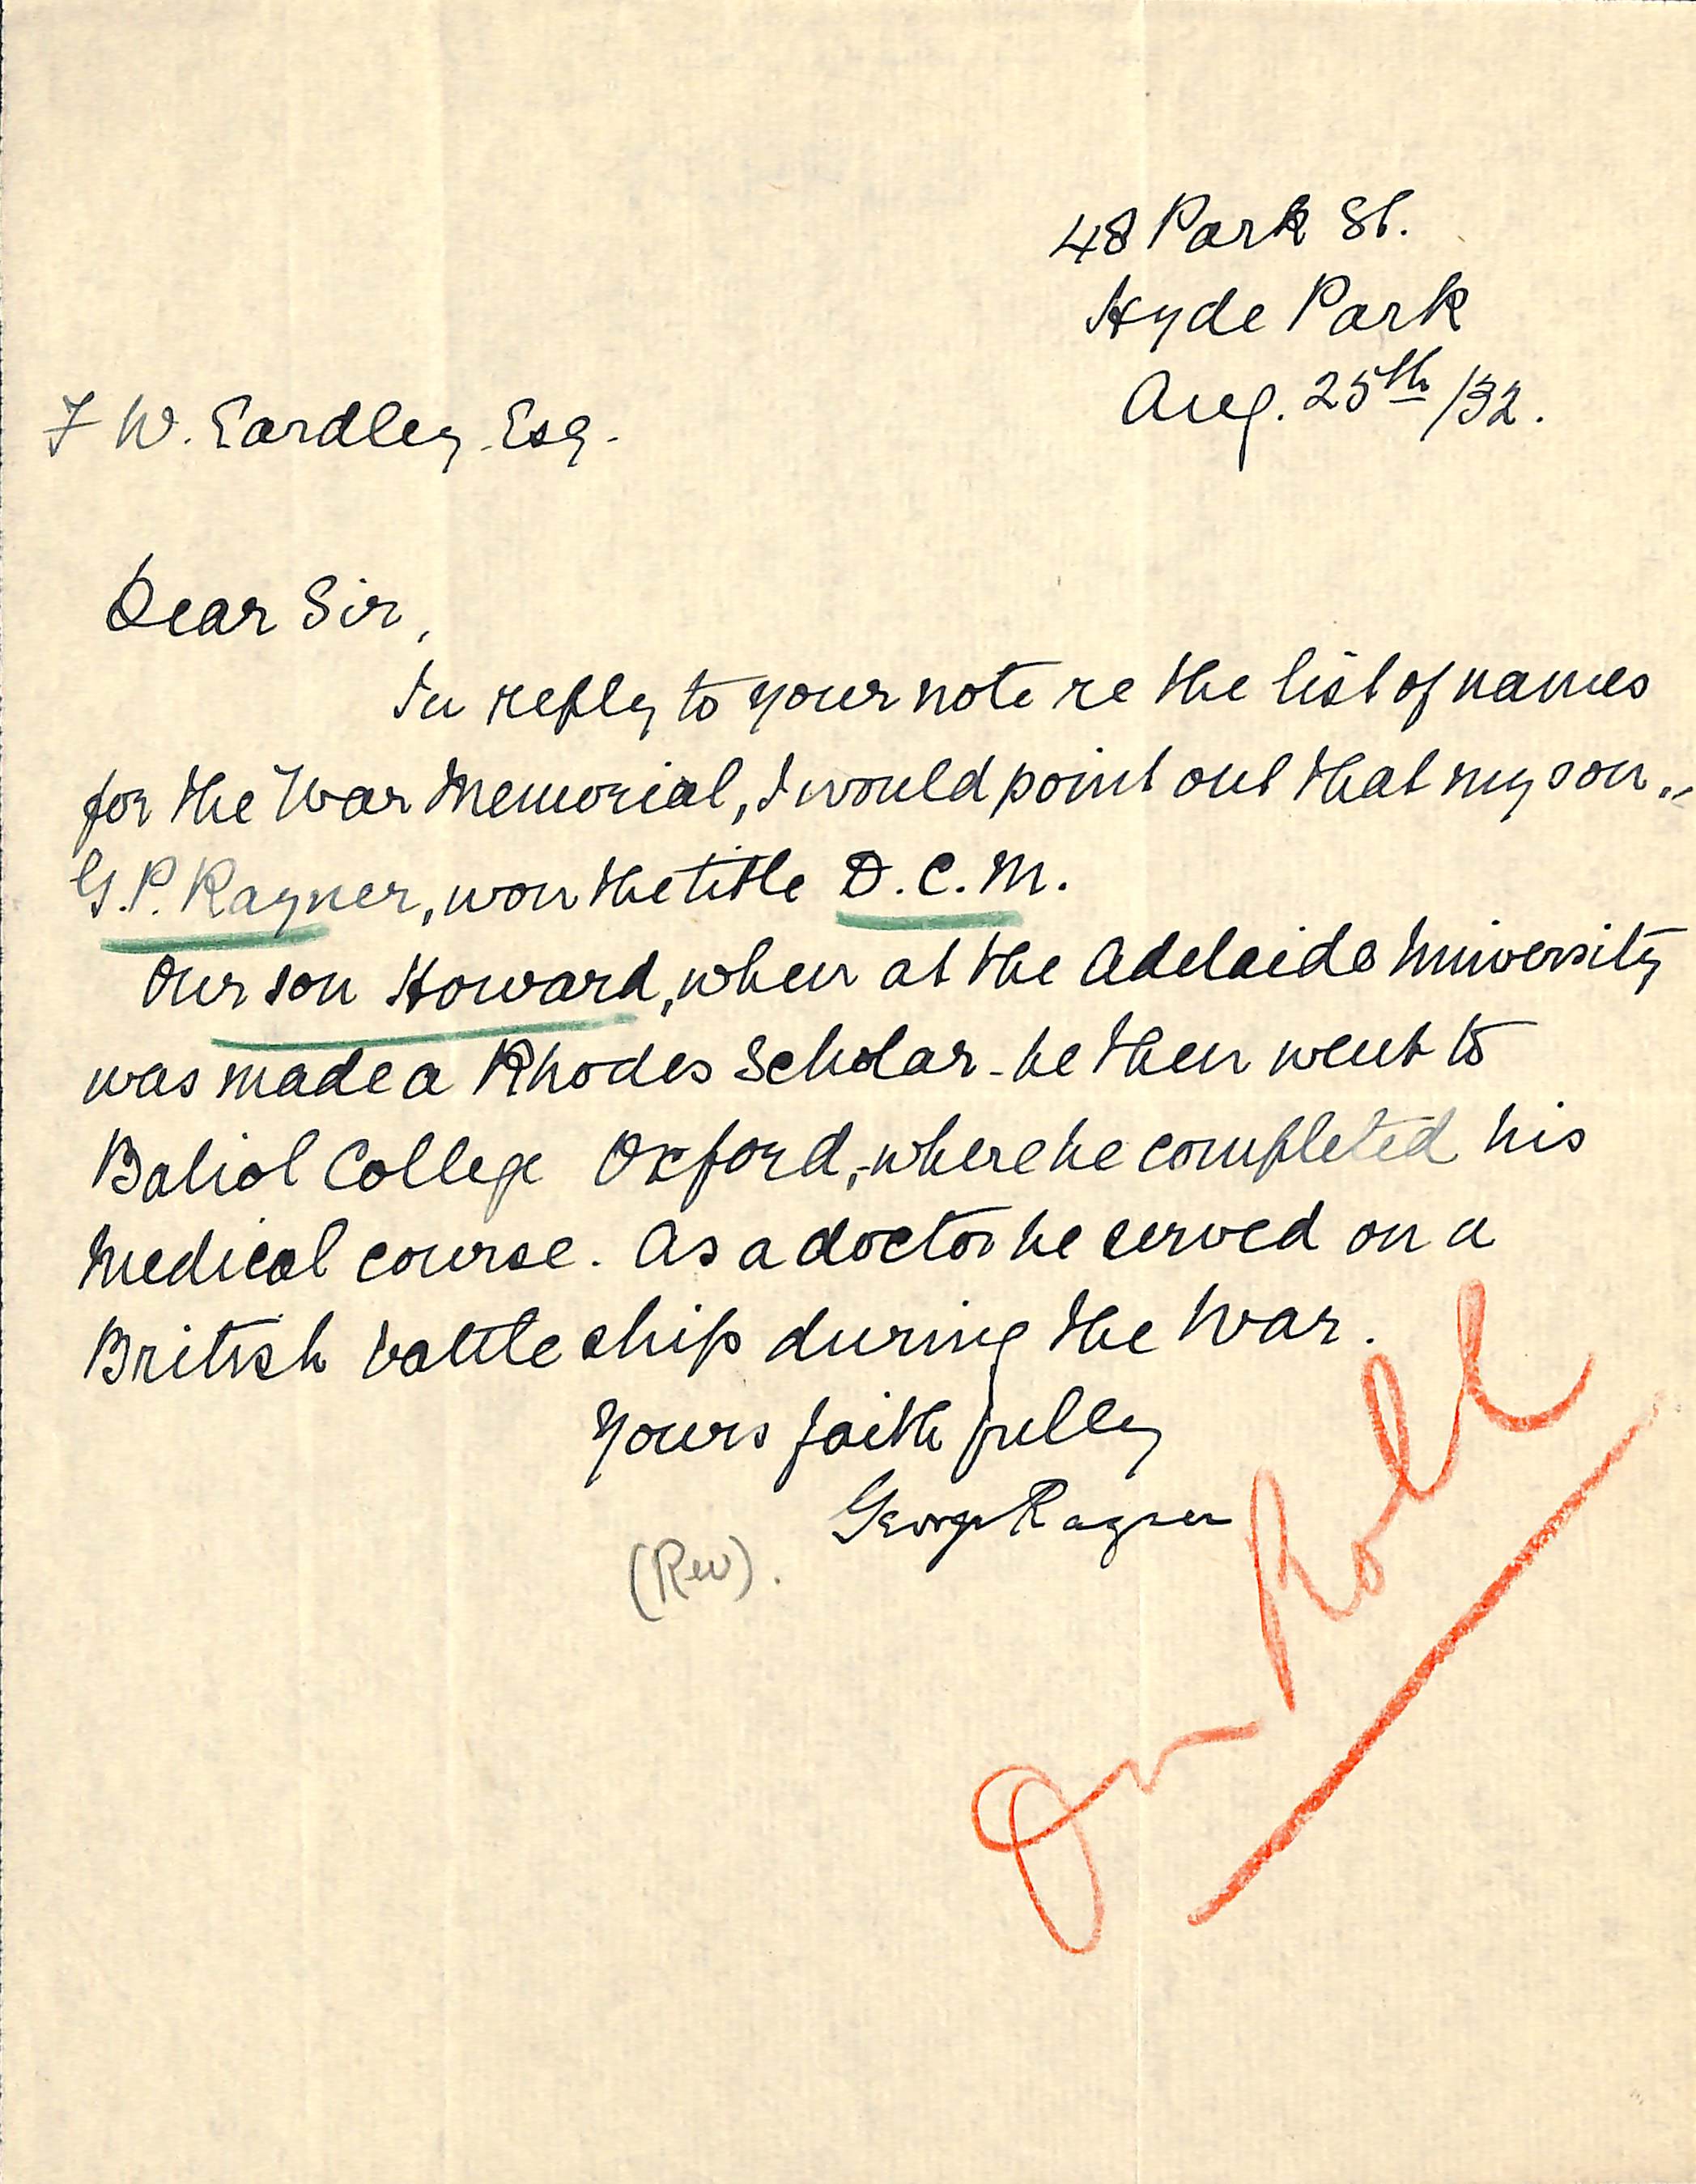 48 Park St.
Hyde Park
Aug. 25th /32.
F W. Eardley Esq.
Dear Sir,
In reply to your note re the list of names
for the War Memorial, I would point out that my son,,
G. P. Rayner, won the title D. C. M.
Our son Howard, when at the Adelaide University
was made a Rhodes Scholar - he then went to
Baliol College Oxford, where he completed his
Medical course. As a doctor he served on a
British battle ship during the War.
Yours faithfully
George Rayner
(Rev).
On Roll